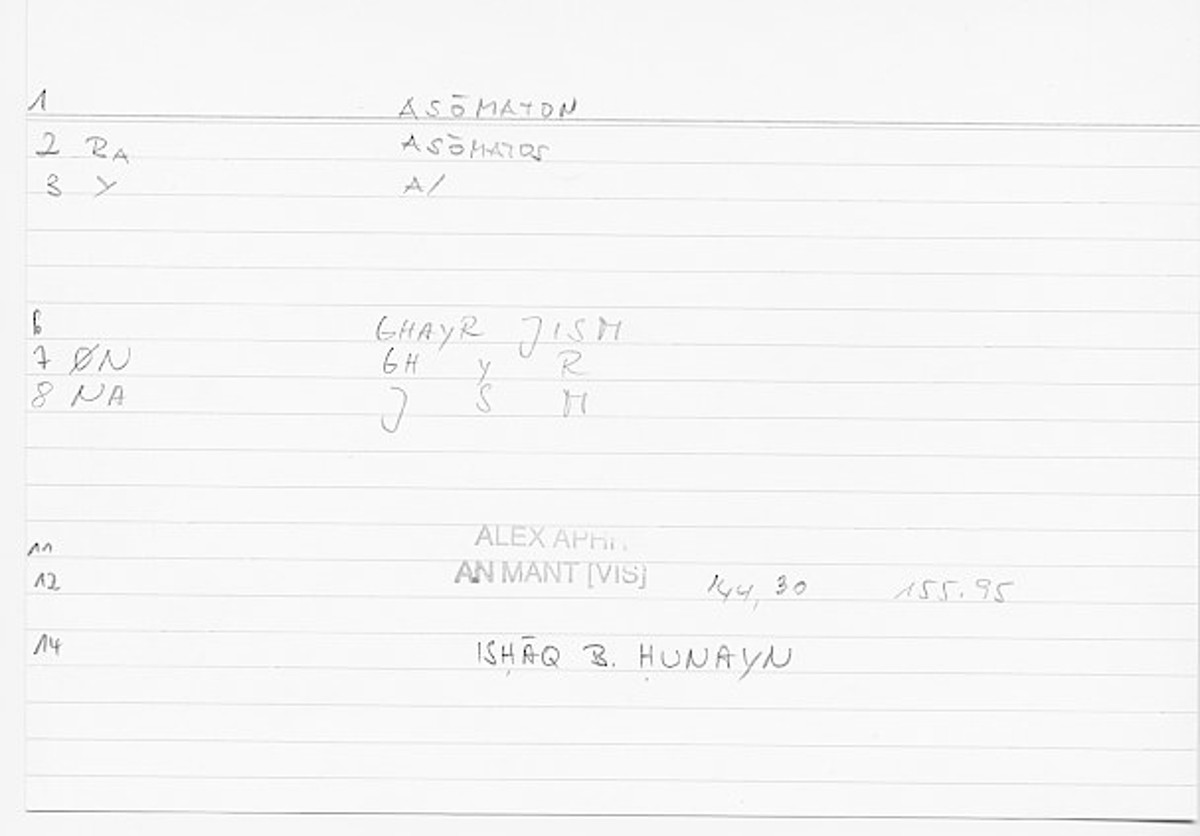 1 ASŌMATON
2 RA ASŌMATOS
3 Y A/
6 GHAYR JISM
7 ØN GH Y R
8 NA J S M
11 ALEX APHR.
12 AN MANT [VIS] 144,30 155.95
14 ISḤĀQ B. ḤUNAYN